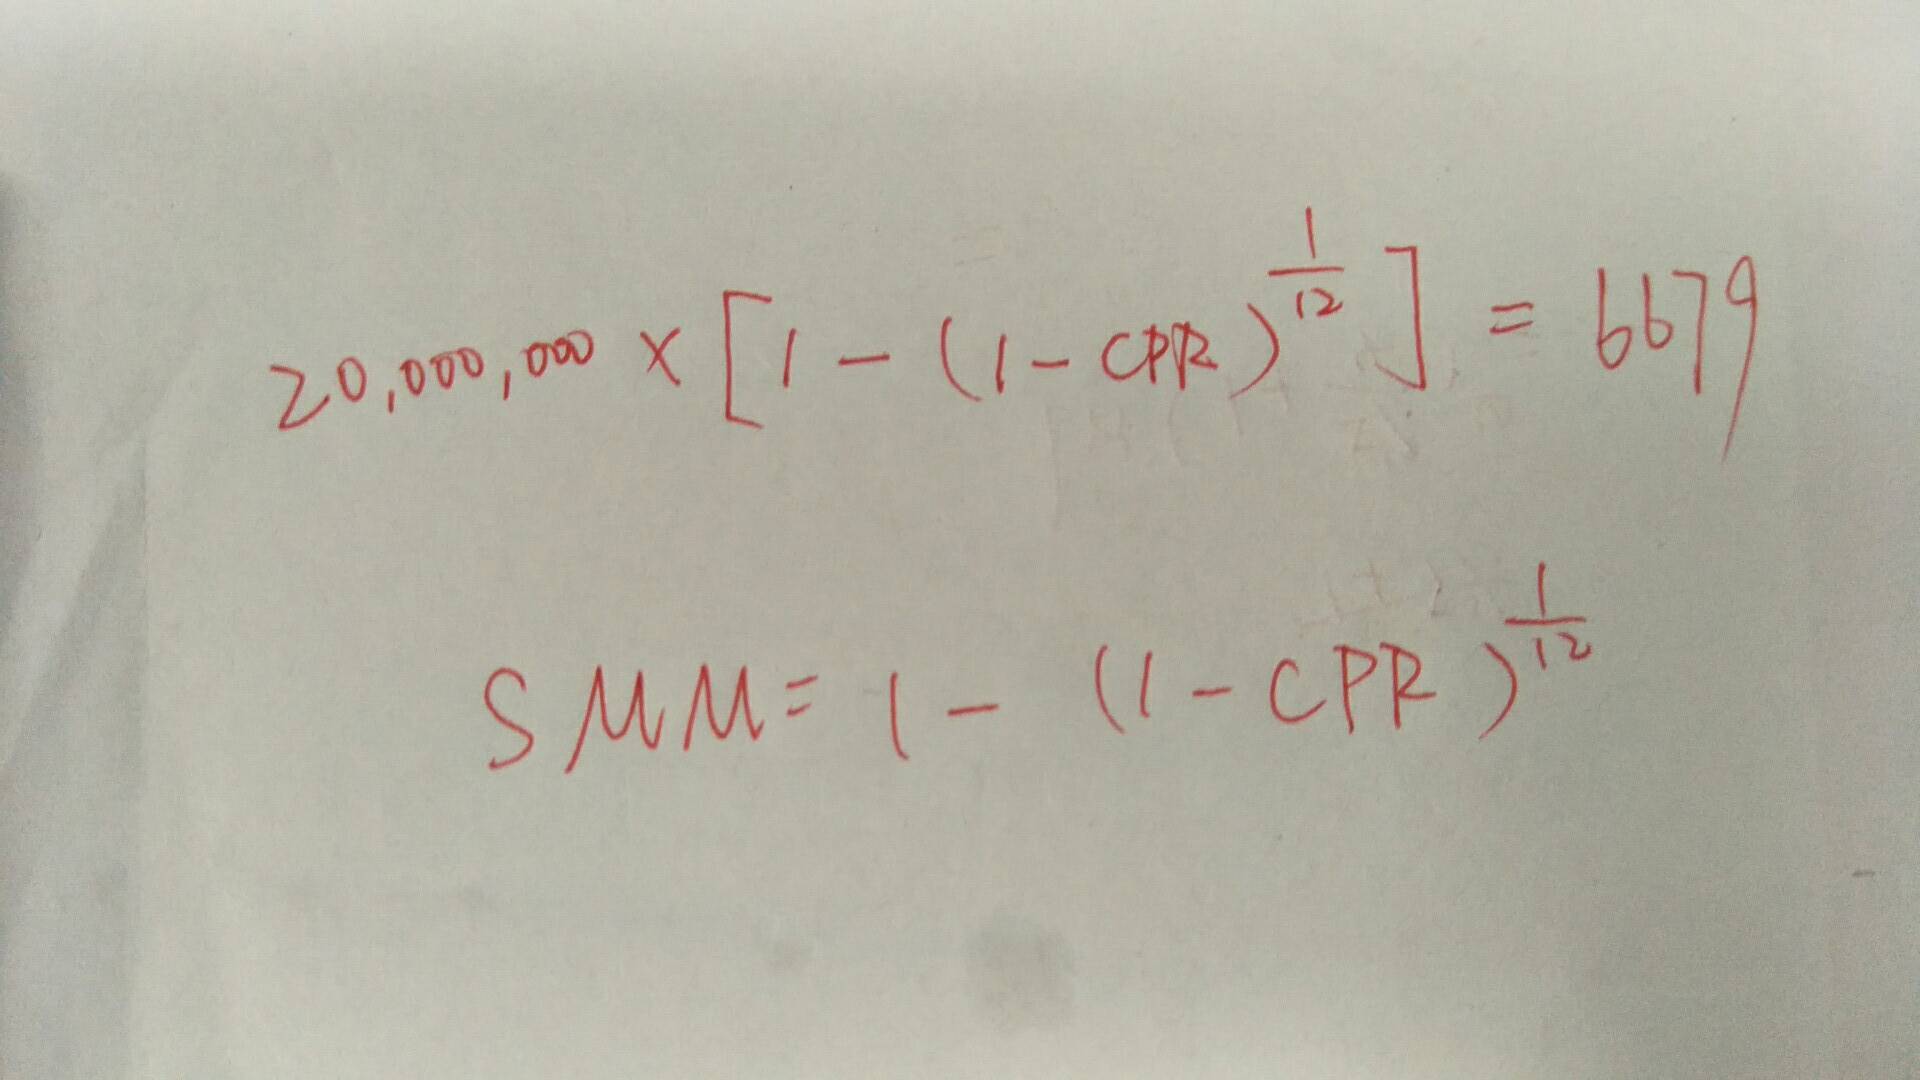 20,000,000 × [1 - (1 - CPR)^{\frac{1}{12}}] = 6679
SMM = 1 - (1 - CPR)^{\frac{1}{12}}